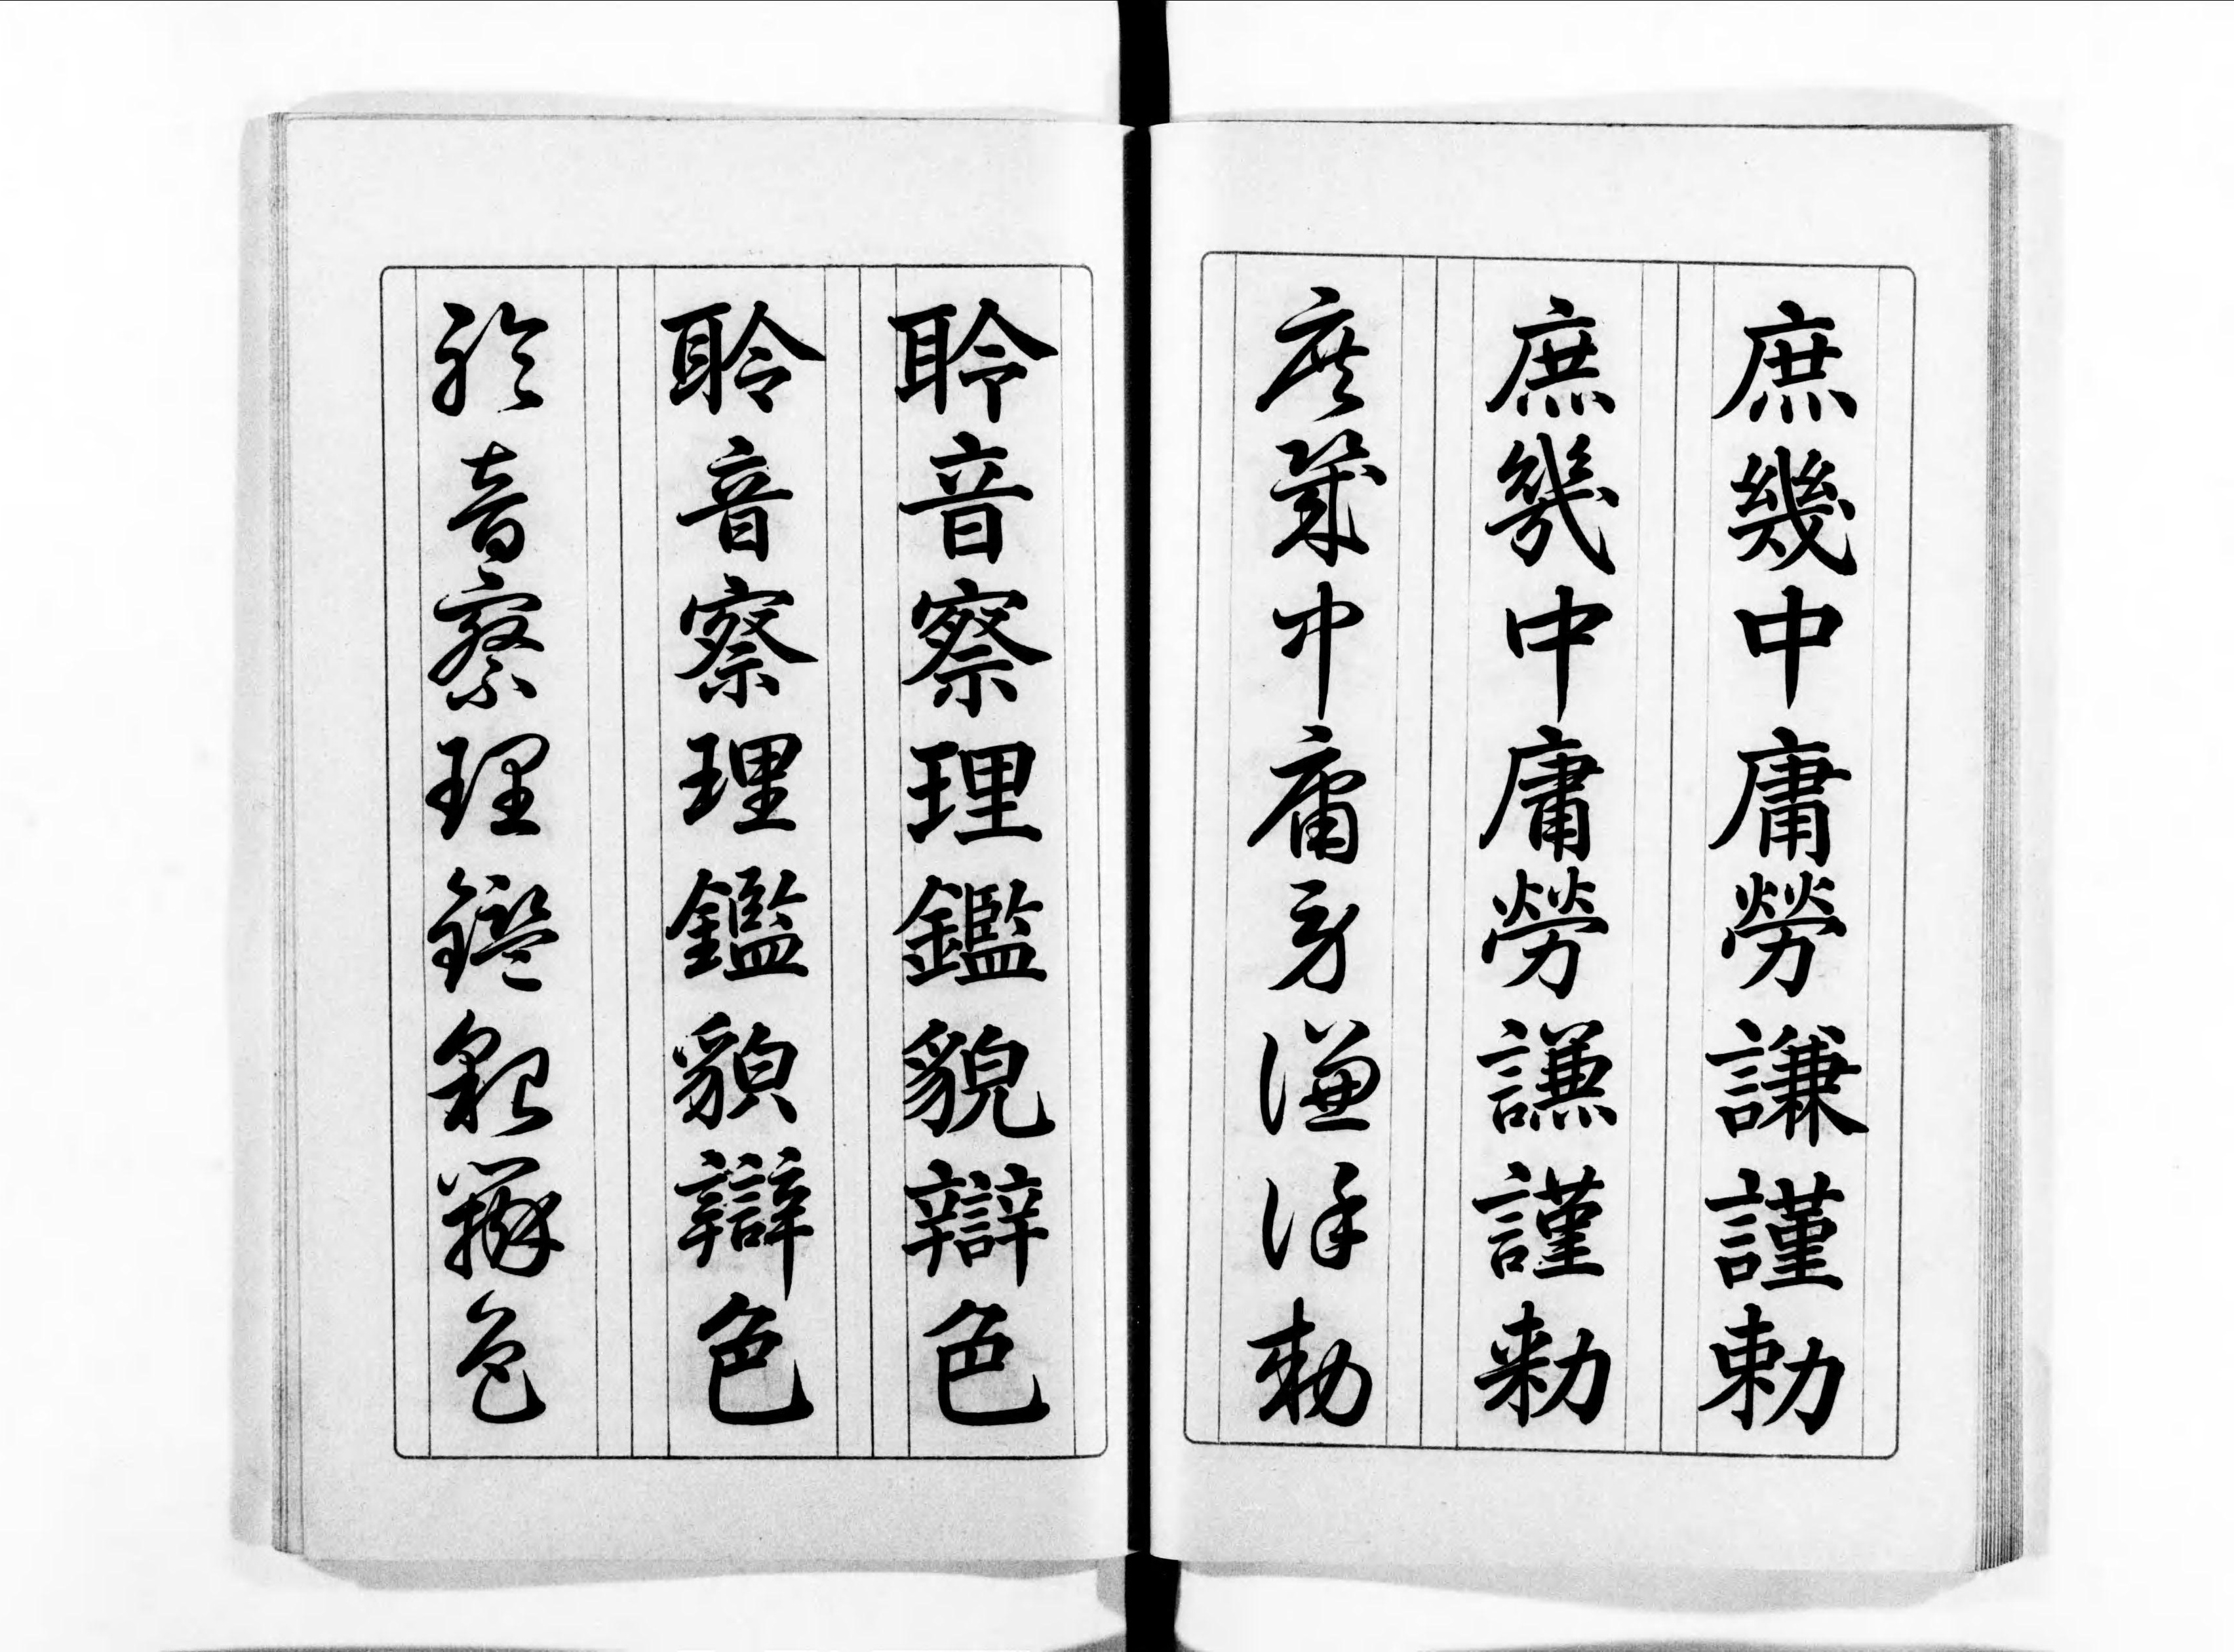 庶幾中庸勞謙謹勅
庶幾中庸勞謙謹勑
庶幾中庸勞謙謹勅
聆音察理鑑貌辯色
聆音察理鑑貌辯色
聆音察理鑑貌辯色